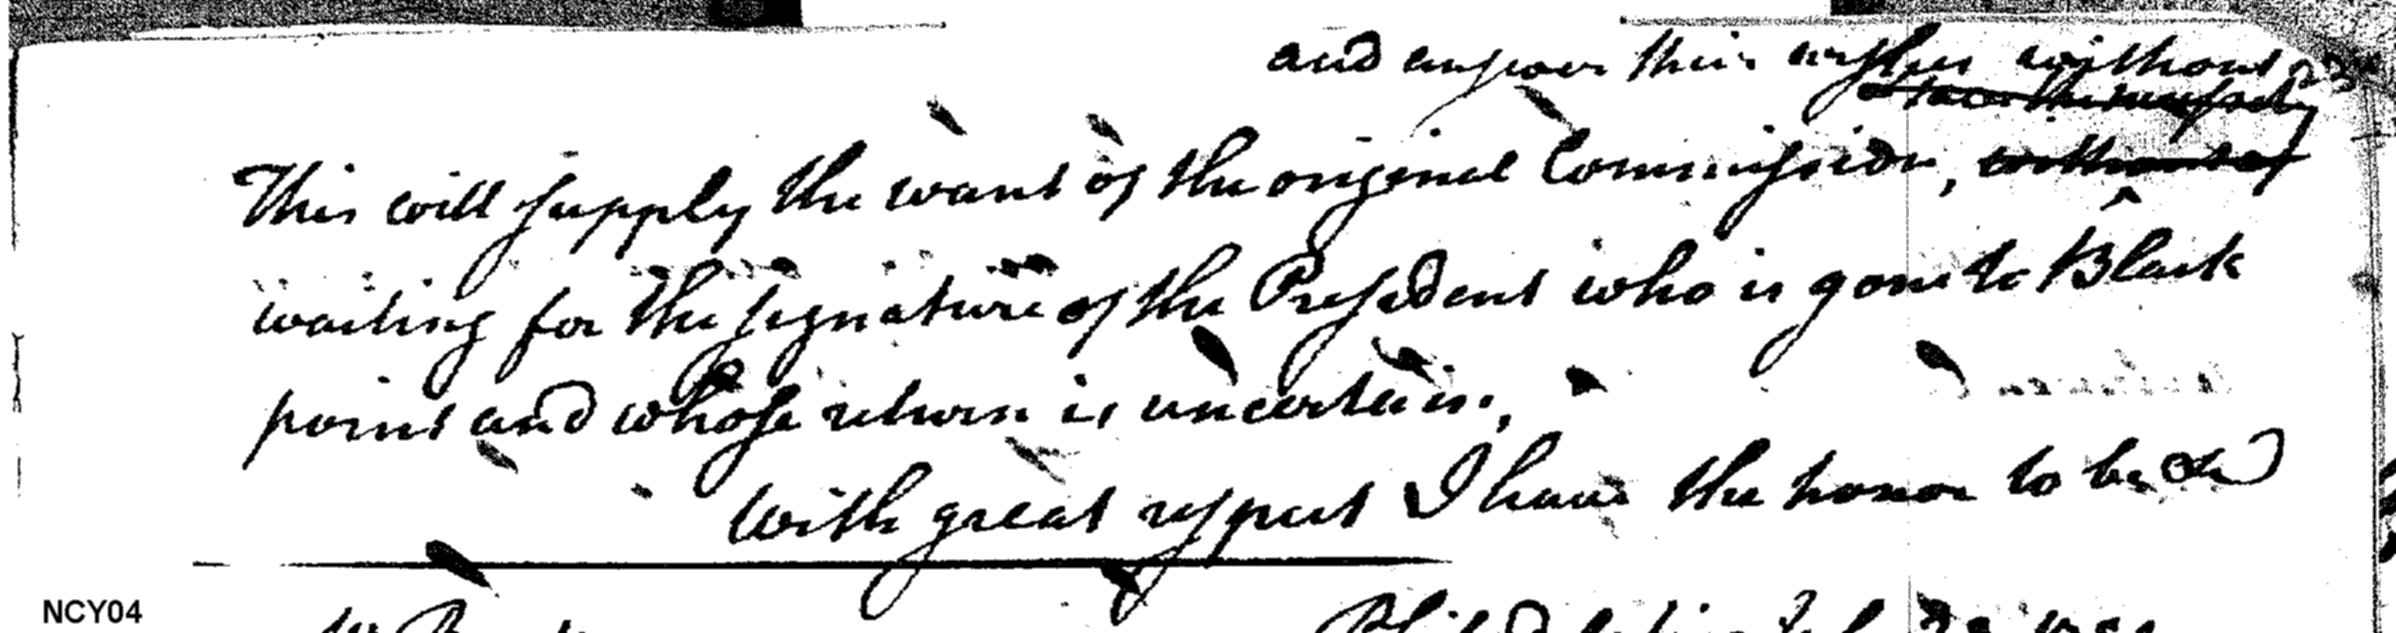 and answer their wishes without
This will supply the want of the original Commission, without
waiting for the signature of the President who is gone to Black
point and whose return is uncertain.
With great respect I have the honor to be &c
NCY04